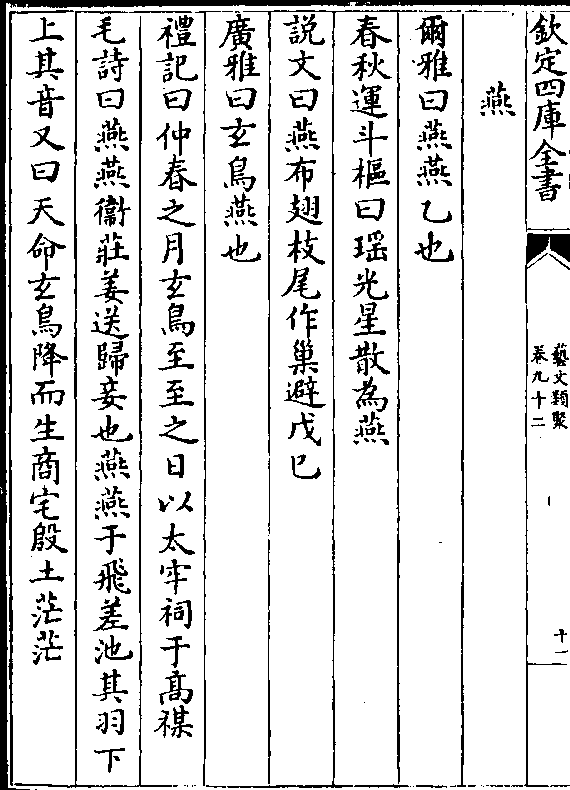 欽定四庫全書
藝文類聚
卷九十二
十一
燕
爾雅曰燕燕乙也
春秋運斗樞曰瑶光星散為燕
説文曰燕布翅枝尾作巢避戊巳
廣雅曰玄鳥燕也
禮記曰仲春之月玄鳥至至之日以太牢祠于髙禖
毛詩曰燕燕衞莊姜送歸妾也燕燕于飛差池其羽下
上其音又曰天命玄鳥降而生商宅殷土茫茫